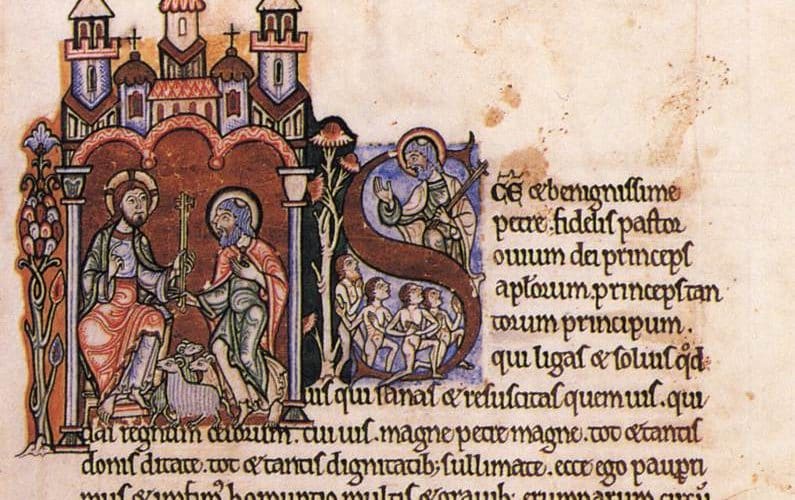 SCE & benignissime
petre. fidelis pastor
ouium dei princeps
aplorum. princeps tan
torum principum.
qui ligas & soluis qd
uis qui sanas & resuscitas quem uis. qui
das regnum celorum. cui uis. magne petre magne. tot & tantis
donis ditate. tot & tantis dignitatib; sullimate. ecce ego paupri
mus & infim homuntio multis & grauib; erumnarum